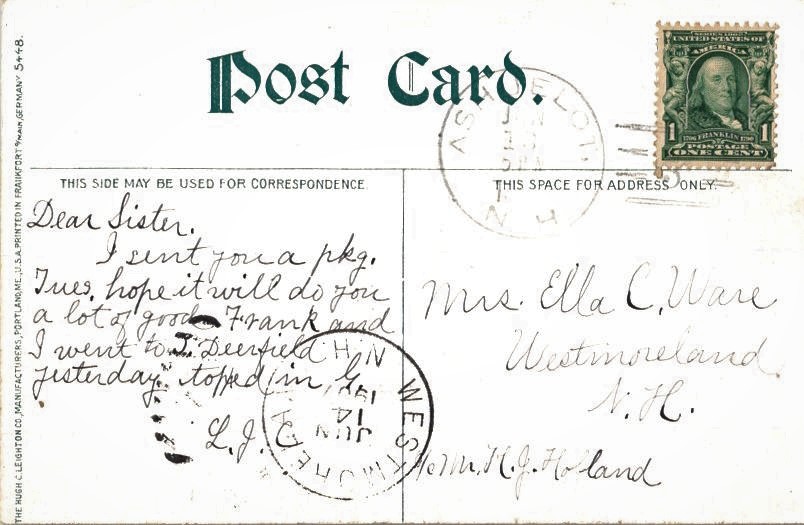 Post Card.
SERIES 1902
UNITED STATES OF
AMERICA
1 FRANKLIN 1
POSTAGE
ONE CENT
ASHUELOT. N.H.
THIS SIDE MAY BE USED FOR CORRESPONDENCE
THIS SPACE FOR ADDRESS ONLY.
Dear Sister.
I sent you a pkg.
Tues. hope it will do you
a lot of good Frank and
I went to S. Deerfield
yesterday. toped in G.
L.J.C.
Mrs. Ella C. Ware
Westmoreland
N.H.
c/o Mr. H.J. Holland
WESTMORELAND N.H.
JUN
14
THE HUGH C. LEIGHTON CO., MANUFACTURERS, PORTLAND, ME., U.S.A. PRINTED IN FRANKFORT o/MAIN, GERMANY 5448.